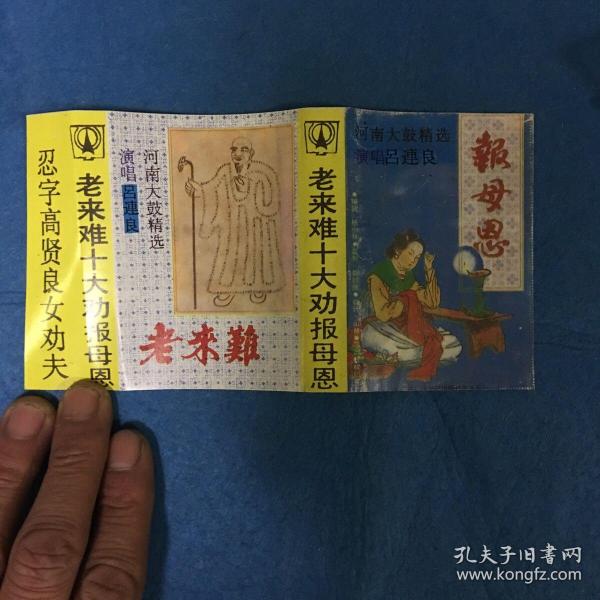 忍字高贤良女劝夫
老来难十大劝报母恩
河南大鼓精选
演唱吕連良
老來難
老来难十大劝报母恩
河南大鼓精选
演唱吕連良
報母恩
孔夫子旧书网
www.kongfz.com